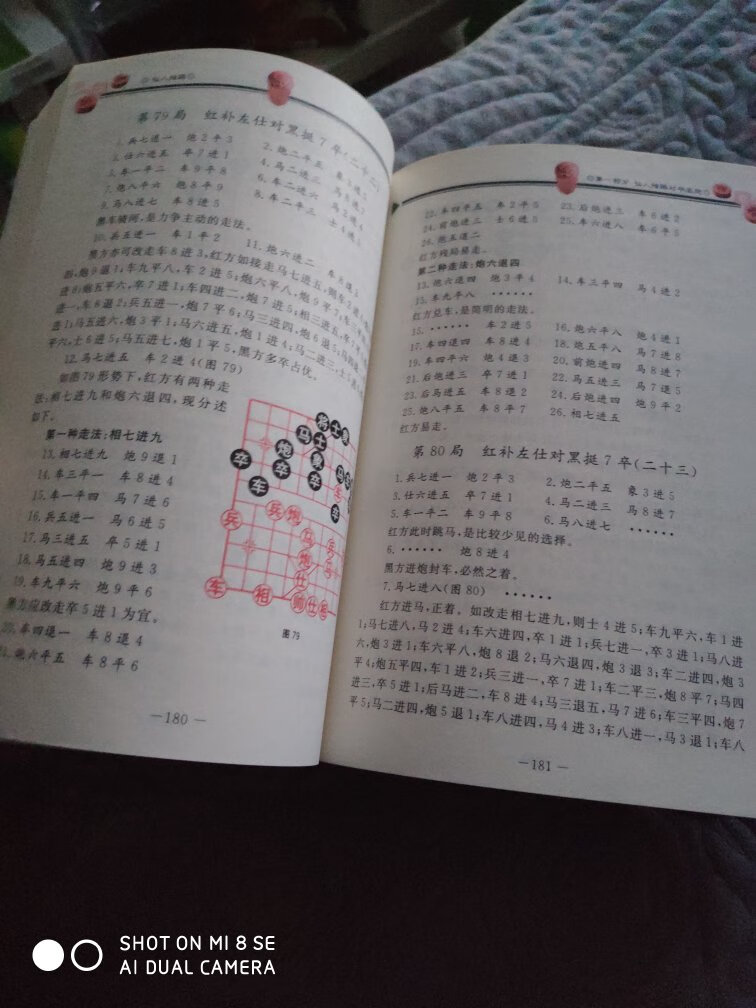 仙人指路
第79局 红补左仕对黑挺7卒(二十二)
1.兵七进一 炮2平3 2.炮二平五 象3进5
3.仕六进五 卒7进1 4.马二进三 马8进7
5.车一平二 车9平8 6.马二进六 马2进4
7.炮八平六 炮8平9 8.车二平三 士4进5
9.马八进七 车8进5
黑车骑河,是力争主动的走法。
10.兵五进一 车1平2 11.炮六进二 车8退5
黑方亦可改走车8进3,红方如接走马七进五,则车2进
12.马七进五 车2进4(图79)
如图79形势下,红方有两种走
法:相七进九和炮六退四,现分述
如下。
第一种走法:相七进九
13.相七进九 炮9退1
14.车三平一 车8进4
15.车一平四 马7进6
16.兵五进一 马6进5
17.马三进五 卒5进1
18.马五进四 炮9进3
19.车九平六 炮9平6
黑方应改走卒5进1为宜。
20.车四退一 车8退4
21.炮六平五 车8平6
车 士 象
马 士
炮 象
卒 卒 卒
车 卒
兵 兵 炮
马
炮 马
仕
车 相 帅 仕 相
图79
—180—
第一部分 仙人指路对卒底炮
22.车四平五 车2平5 23.后炮进三 车6进2
24.前炮进三 士6进5 25.车六进八 车6平5
26.炮五退二
红方残局易走。
第二种走法:炮六退四
13.炮六退四 炮3平4 14.车三平四 马4进2
15.车九平八 ······
红方兑车,是简明的走法。
15.······ 车2进5 16.炮六平八 炮4进1
17.车四退四 车8进4 18.炮五平八 马7进8
19.车四平六 炮4退3 20.前炮进四 马8进7
21.后炮进三 卒7进1 22.马五进三 马7退5
23.后马进五 车8退2 24.后炮退四 炮9平2
25.炮八平五 车8平7 26.相七进五
红方易走。
第80局 红补左仕对黑挺7卒(二十三)
1.兵七进一 炮2平3 2.炮二平五 象3进5
3.仕六进五 卒7进1 4.马二进三 马8进7
5.车一平二 车9平8 6.马八进七 ······
红方此时跳马,是比较少见的选择。
6.······ 炮8进4
黑方进炮封车,必然之着。
7.马七进八(图80) ······
红方进马,正着。如改走相七进九,则士4进5;车九平六,车1进
1;马七进八,马2进4;车六进四,卒1进1;兵七进一,卒3进1;马八进
六,炮3进1;车六平八,炮8退2;马六退四,炮3退3;车二进四,炮3
平4;炮五平四,车1进2;兵三进一,卒7进1;车二平三,炮8平7;马四
进三,卒5进1;后马进二,车8进4;马三退五,马7进6;车三平四,炮7
平5;马二进四,炮5退1;车八进四,马4进3;车八进一,马3退1;车八
—181—
SHOT ON MI 8 SE
AI DUAL CAMERA